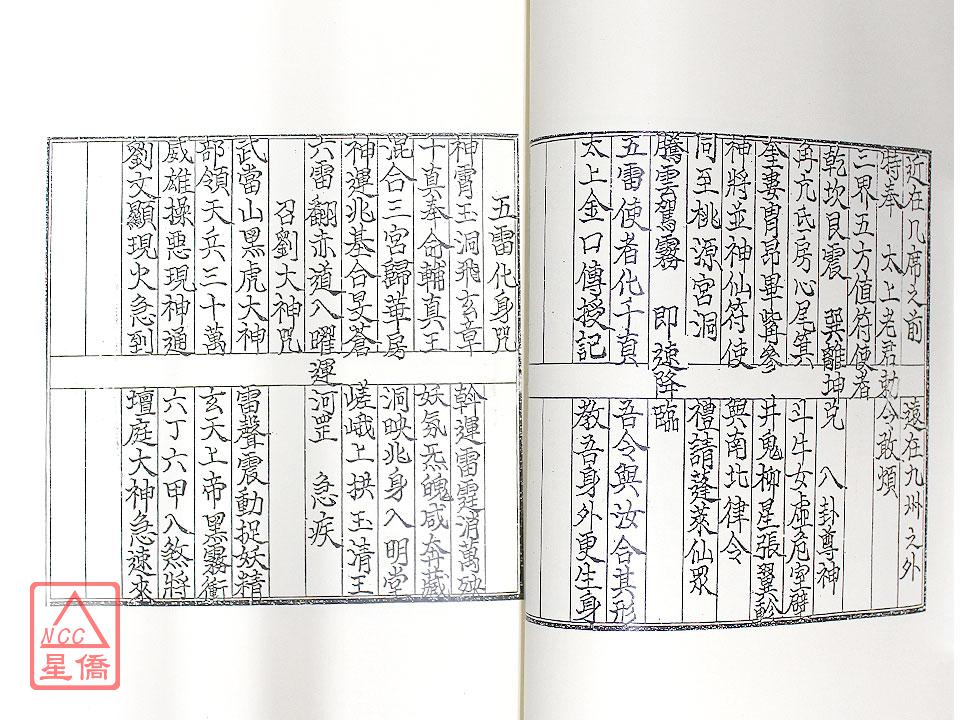 近在几席之前 遠在九州之外
特奉 太上老君勅令敢煩
三界五方值符使者
乾坎艮震 巽離坤兌 八卦尊神
角亢氐房心尾箕 斗牛女虛危室壁
奎婁胃昴畢觜參 井鬼柳星張翼軫
神將並神仙符使 與南北律令
同至桃源宮洞 禮請蓬萊仙眾
騰雲駕霧 即速降臨
五雷使者化千真 吾令與汝合其形
太上金口傳授記 教吾身外更生身
五雷化身咒
神霄玉洞飛玄章 斡運雷霆消萬殃
十真奉命輔真王 妖氛炁魄咸奔藏
混合三宮歸華房 洞映兆身入明堂
神運兆基合旻蒼 嵯峨上拱玉清王
六雷翻赤道八曜運河罡 急疾
召劉大神咒
武當山黑虎大神 雷聲震動捉妖精
部領天兵三十萬 玄天上帝黑霧衝
威雄操惡現神通 六丁六甲八煞將
劉文顯現火急到 壇庭大神急速來
NCC
星僑